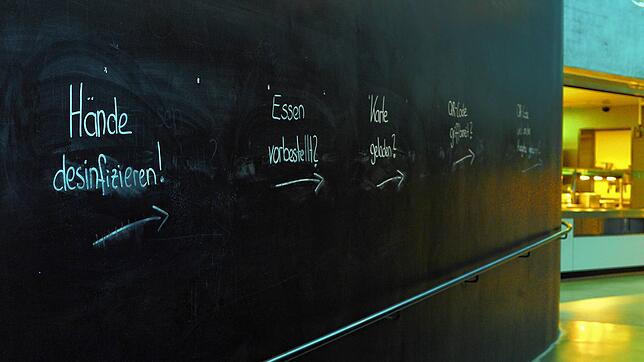 Hände
desinfizieren!
Essen
vorbestellt?
Karte
geladen?
QR-Code
geöffnet?
QR-Code